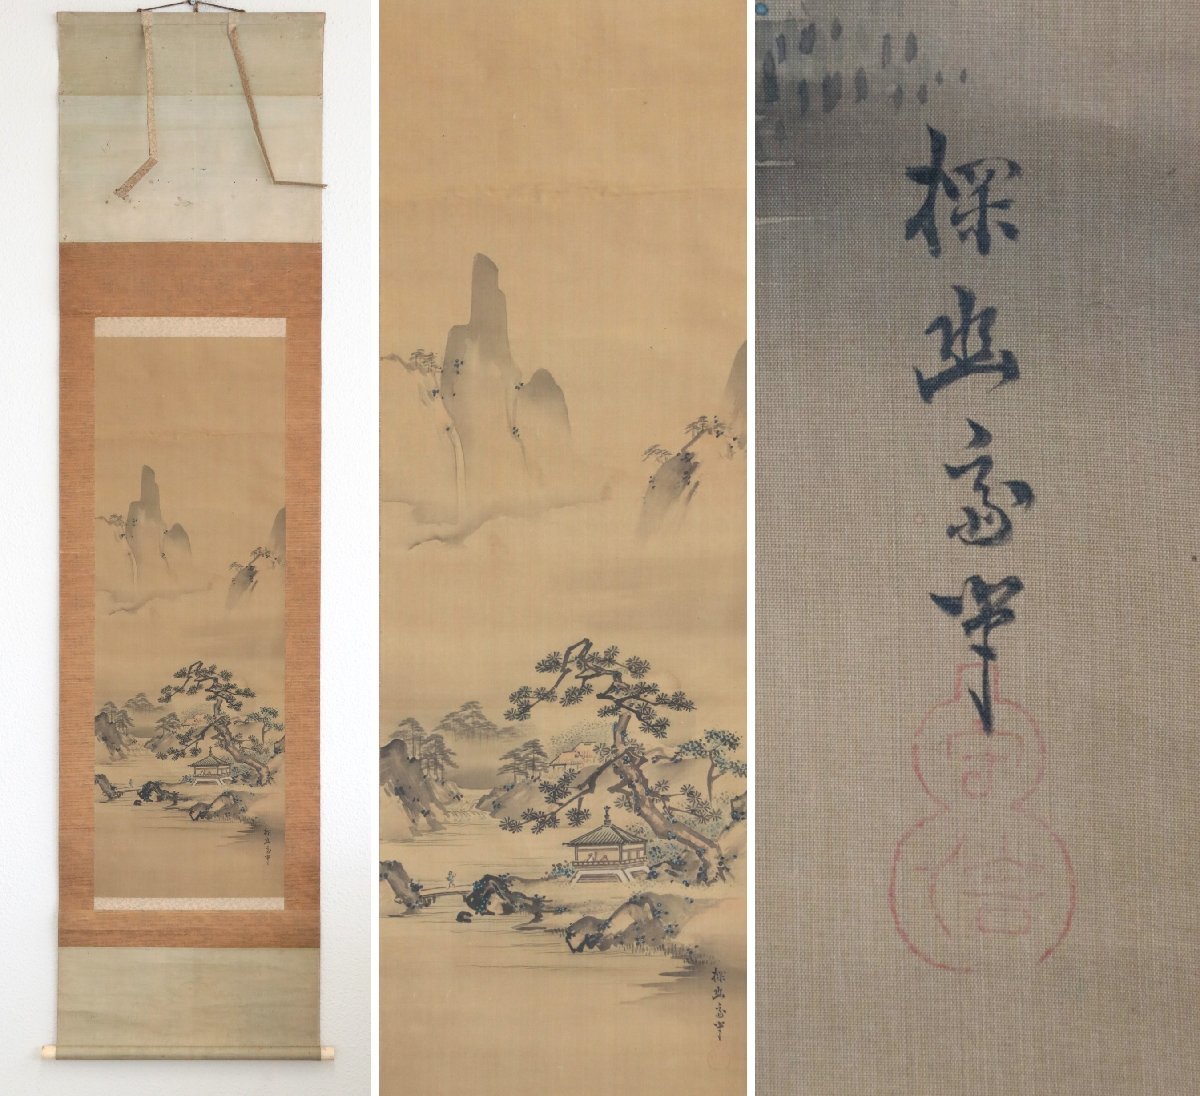 探幽斎筆
探幽斎筆
探幽斎筆
守信